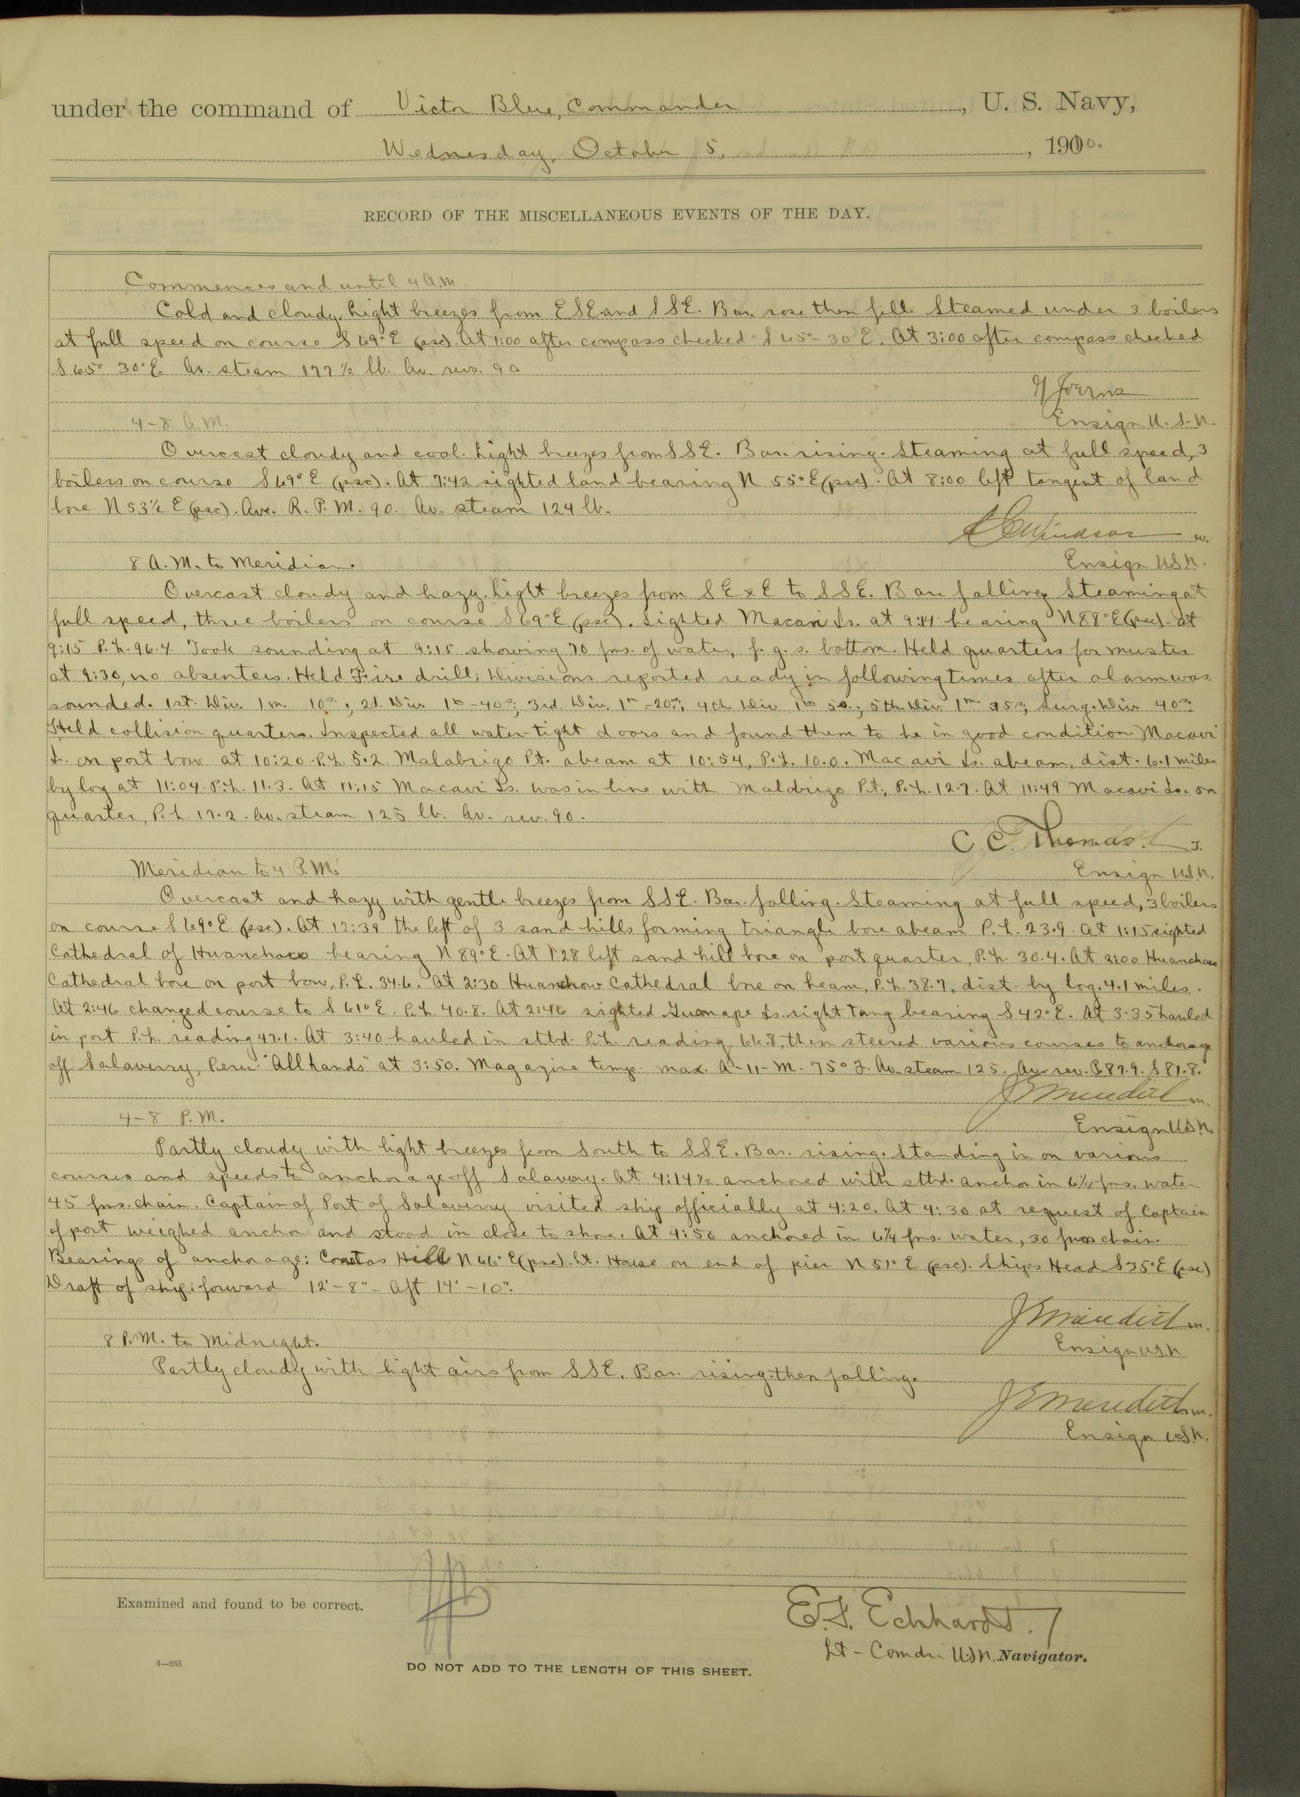 under the command of Victor Blue, Commander, U. S. Navy,
Wednesday, October 5, 1900.
RECORD OF THE MISCELLANEOUS EVENTS OF THE DAY.
Commences and until 4 a.m.
Cold and cloudy. Light breezes from ESE and SSE. Bar. rose then fell. Steamed under 3 boilers
at full speed on course S 69° E (psc). At 1:00 after compass checked S 65°-30' E. At 3:00 after compass checked
S 65° 30' E. Av. steam 177½ lb. Av. revs. 90
Ensign U.S.N.
4-8 A.M.
Overcast cloudy and cool. Light breezes from SSE. Bar. rising. Steaming at full speed, 3
boilers on course S 69° E (psc). At 7:42 sighted land bearing N 55° E (psc). At 8:00 left tangent of land
bore N 53½ E (psc). Ave. R.P.M. 90. Av. steam 124 lb.
Ensign USN.
8 A.M. to Meridian.
Overcast cloudy and hazy. Light breezes from SExE to SSE. Bar falling. Steaming at
full speed, three boilers on course S 69° E (psc). Sighted Macavi Is. at 9:14 bearing N 88° E (psc). at
9:15 P.L. 96.4. Took sounding at 9:15 showing 70 fms. of water, f. g. s. bottom. Held quarters for muster
at 9:30, no absentees. Held Fire drill; Divisions reported ready in following times after alarm was
sounded. 1st. Div. 1m. 10s; 2d. Div. 1m-40s; 3rd. Div. 1m-20s; 4th Div 1m 50; 5th Div 1m 25s; Surg. Div. 40s.
Held collision quarters. Inspected all water-tight doors and found them to be in good condition. Macavi
I. on port bow at 10:20 P.L. 5.2. Malabrigo Pt. abeam at 10:54, P.L. 10.0. Macavi Is. abeam, dist. 6.1 miles
by log at 11:04 P.L. 11.3. At 11:15 Macavi Is. was in line with Maldrigo Pt., P.L. 12.7. At 11:49 Macavi Is. on
quarter, P.L. 17.2. Av. steam 125 lb. Av. rev. 90.
C. C. Thomas. J.
Ensign U.S.N.
Meridian to 4 P.M.
Overcast and hazy with gentle breezes from SSE. Bar. falling. Steaming at full speed, 3 boilers
on course S 69° E (psc). At 12:39 the left of 3 sand hills forming triangle bore abeam P.L. 23.9. At 1:15 sighted
Cathedral of Huanchaco bearing N 89° E. At 1:28 left sand hill bore on port quarter, P.L. 30.4. At 2:00 Huanchaco
Cathedral bore on port bow, P.L. 34.6. At 2:30 Huanchow Cathedral bore on beam, P.L. 38.7, dist. by log. 4.1 miles.
At 2:46 changed course to S 61° E. P.L. 40.8. At 2:46 sighted Guanape Is. right Tang bearing S 42° E. At 3:35 hauled
in port P.L. reading 47.1. At 3:40 hauled in stbd. P.L. reading 66.8, then steered various courses to anchorage
off Salaverry, Peru. "All hands" at 3:50. Magazine temp. max. A-11-M. 75° F. Av. steam 125. Av. rev. P. 87.9. S 81.8.
Ensign U.S.N.
4-8 P.M.
Partly cloudy with light breezes from South to SSE. Bar. rising. Standing in on various
courses and speeds to anchorage off Salavery. At 4:14½ anchored with stbd. anchor in 6¼ fms. water
45 fms. chain. Captain of Port of Salaverry visited ship officially at 4:20. At 4:30 at request of Captain
of port weighed anchor and stood in close to shore. At 4:50 anchored in 6¼ fms. water, 30 fms chain.
Bearings of anchorage: Hill N 66° E (psc). Lt. House on end of pier N 51° E (psc). Ships Head S 35° E (psc)
Draft of ship: forward 12'-8" - Aft 14'-10".
J Meredith m.
Ensign USN
8 P.M. to Midnight.
Partly cloudy with light airs from SSE. Bar. rising then falling.
J Meredith m.
Ensign U.S.N.
Examined and found to be correct.
E. F. Eckhardt.
Lt-Comdr. U.S.N. Navigator.
4—265
DO NOT ADD TO THE LENGTH OF THIS SHEET.